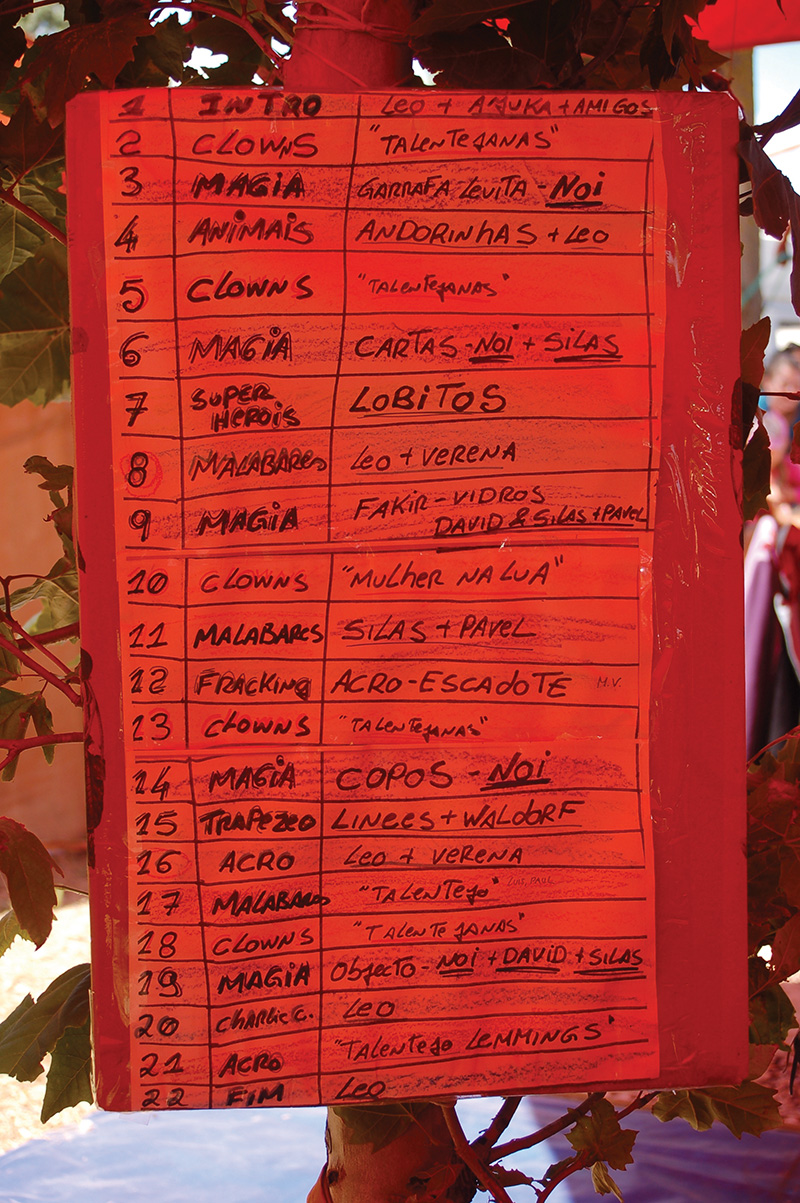 1 INTRO Leo + ANJUKA + AMIGOS
2 CLOWNS "TALENTEJANAS"
3 MAGIA GARRAFA LEVITA - NOi
4 ANiMAiS ANDORINHAS + LEO
5 CLOWNS "TALENTEJANAS"
6 MAGiA CARTAS - NOi + SiLAS
7 SUPER HEROiS LOBiTOS
8 MALABARES Leo + VERENA
9 MAGIA FAKiR - VIDROS
DAVID & SiLAS + PAVEL
10 CLOWNS "MULHER NA LUA"
11 MALABARES SILAS + PAVEL
12 FRACKING ACRO-ESCADOTE M.V.
13 CLOWNS "TALENTEJANAS"
14 MAGiA COPOS - NOi
15 TRAPEZEO LINEES + WALDORF
16 ACRO Leo + VERENA
17 MALABARES "TALENTEJO"
18 CLOWNS "TALENTEJANAS"
19 MAGIA Objecto - NOi + DAVID + SILAS
20 CHARLIE C. Leo
21 ACRO "TALENTEJO LEMMINGS"
22 FIM Leo